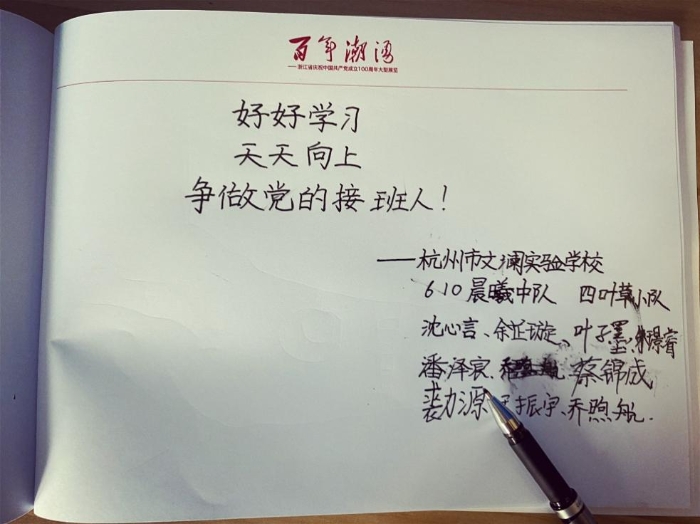 百年潮涌
——浙江省庆祝中国共产党成立100周年大型展览
好好学习
天天向上
争做党的接班人！
——杭州市文澜实验学校
610晨曦中队 四叶草小队
沈心言、余芷璇、叶子墨、
潘泽宸、蔡锦成
裘力源 振宇、乔煦航.